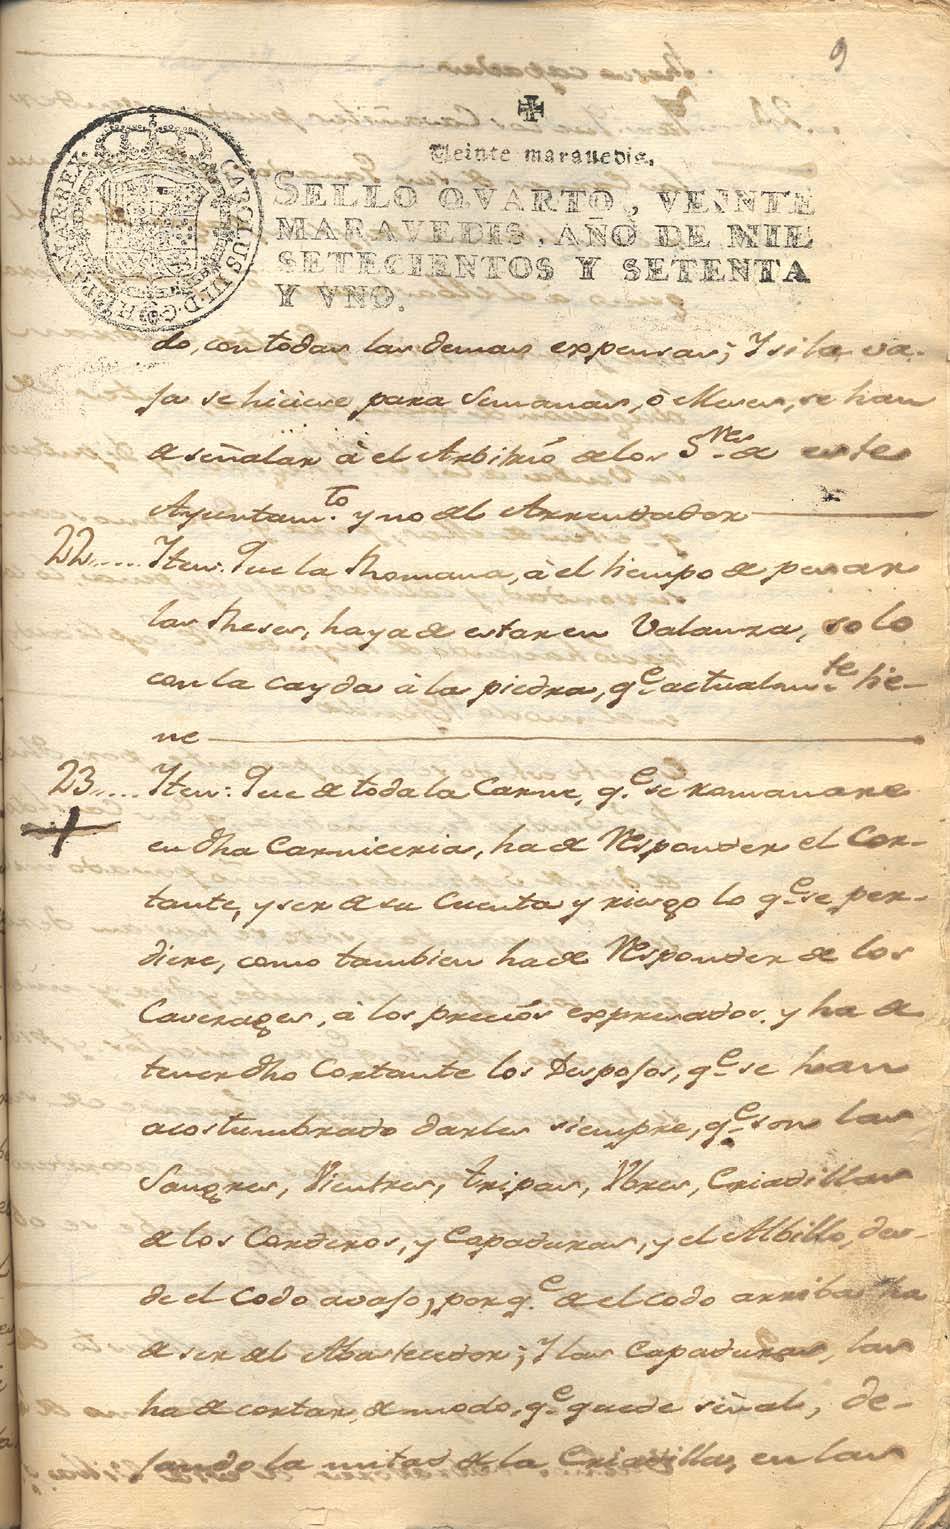 9
Veinte maravedis.
SELLO QVARTO, VEINTE
MARAVEDIS, AÑO DE MIL
SETECIENTOS Y SETENTA
Y VNO.
CAROLUS III D G HISPANIAR REX
do, con todas las demas expensas; Y si la va-
ja se hiciese para Semanas, ò Meses, se han
de señalar à el Arbitrió de los S.res de este
Ayuntam.to y no del Arrendador
22..... Iten: Que la Romana, à el tiempo de pesar
las Reses, haya de estar en Valanza, solo
con la cayda à la piedra, q.e actualm.te tie-
ne
23..... Iten: Que de toda la Carne, q.e se romanare
en dha Carniceria, ha de Responder el Cor-
tante, y ser de su Cuenta y riesgo lo q.e se per-
diere, como tambien ha de Responder de los
Caverages, à los preciós expresados. y ha de
tener dho Cortante los Despojos, q.e se han
acostumbrado darles siempre, q.e son las
Sangres, Vientres, tripas, Vbres, Criadillas
de los Corderos, y Capaduras, y el Albillo, des-
de el Codo avajo, porq.e de el codo arriba ha
de ser del Abastecedor; Y las Capaduras, las
ha de cortar, de modo, q.e quede señal, de-
jando la mitad de la Criadilla, en las